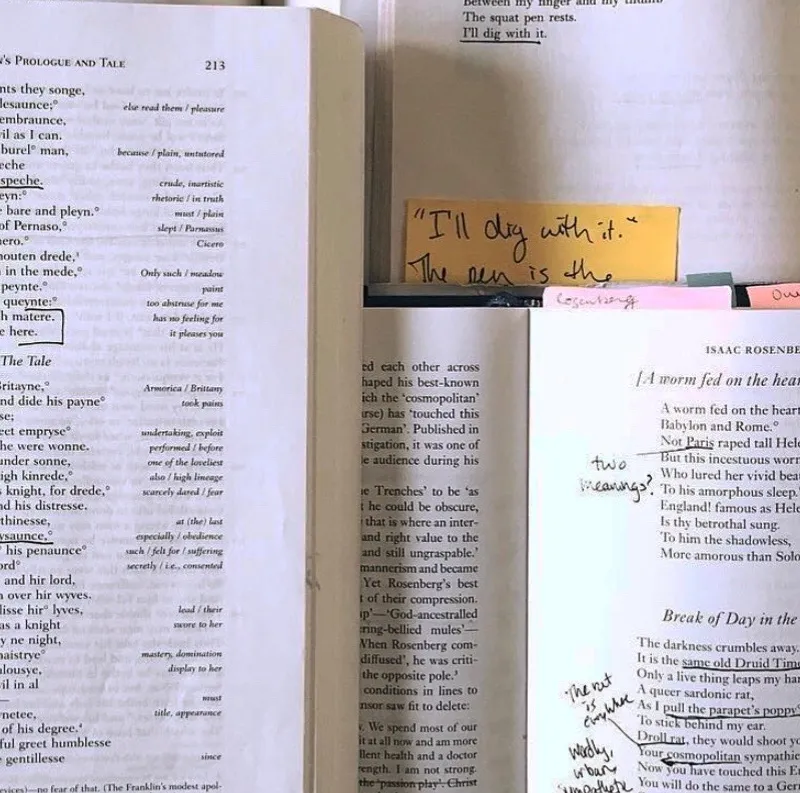 'S PROLOGUE AND TALE 213
nts they songe,
lesaunce;° else read them / pleasure
embraunce,
il as I can.
burel° man, because / plain, untutored
eche
speche. crude, inartistic
eyn:° rhetoric / in truth
e bare and pleyn.° must / plain
of Pernaso,° slept / Parnassus
ero.° Cicero
houten drede,³
in the mede,° Only such / meadow
peynte.° paint
queynte:° too abstruse for me
h matere. has no feeling for
e here. it pleases you
The Tale
Britayne,° Armorica / Brittany
nd dide his payne° took pains
se;
eet empryse° undertaking, exploit
he were wonne. performed / before
under sonne, one of the loveliest
eigh kinrede,° also / high lineage
s knight, for drede,° scarcely dared / fear
nd his distresse.
thinesse, at (the) last
ysaunce,° especially / obedience
his penaunce° such / felt for / suffering
ord° secretly / i.e., consented
and hir lord,
n over hir wyves.
lisse hir° lyves, lead / their
as a knight swore to her
y ne night,
maistrye° mastery, domination
alousye, display to her
il in al
— must
netee, title, appearance
of his degree.⁴
ful greet humblesse
e gentillesse since
evices)—no fear of that. (The Franklin's modest apol-
Between my finger and my thumb
The squat pen rests.
I'll dig with it.
"I'll dig with it."
The pen is the
Rosenberg
ed each other across
haped his best-known
ich the 'cosmopolitan'
rse) has 'touched this
German'. Published in
stigation, it was one of
e audience during his
e Trenches' to be 'as
t he could be obscure,
that is where an inter-
and right value to the
and still ungraspable.'
mannerism and became
Yet Rosenberg's best
t of their compression.
up'—'God-ancestralled
ring-bellied mules'—
When Rosenberg com-
diffused', he was criti-
the opposite pole.³
conditions in lines to
nsor saw fit to delete:
. We spend most of our
it at all now and am more
llent health and a doctor
ength. I am not strong.
the 'passion play'. Christ
ISAAC ROSENBE
[A worm fed on the hear
A worm fed on the heart
Babylon and Rome.°
Not Paris raped tall Hele
But this incestuous worm
Who lured her vivid beau
To his amorphous sleep.
England! famous as Hele
Is thy betrothal sung.
To him the shadowless,
More amorous than Solo
two
meanings?
Break of Day in the
The darkness crumbles away.
It is the same old Druid Time
Only a live thing leaps my han
A queer sardonic rat,
As I pull the parapet's poppy
To stick behind my ear.
Droll rat, they would shoot yo
Your cosmopolitan sympathie
Now you have touched this E
You will do the same to a Ger
The rat
is
everywhere
wordly,
urban
sympathetic